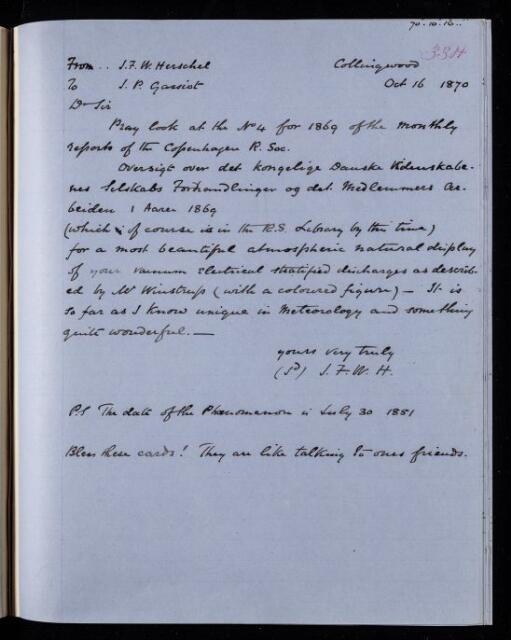 70.10.16.
From.. J.F.W. Herschel Collingwood
To J.P. Gassiot Oct 16 1870
Dr Sir
Pray look at the No 4 for 1869 of the monthly
reports of the Copenhagen R. Soc.
Oversigt over det kongelige Danske Videnskabe-
nes Selskabs Forhandlinger og det Medlemmers Ar-
beiden i Aaren 1869
(which of course is in the R.S. Library by this time)
for a most beautiful atmospheric natural display
of your vacuum electrical stratified discharges as describ-
ed by Mr Winstrup (with a coloured figure) — It is
so far as I know unique in Meteorology and something
quite wonderful. —
yours very truly
(Sd) J.F.W.H.
P.S The date of the Phænomenon is July 30 1851
Bless these cards! They are like talking to ones friends.